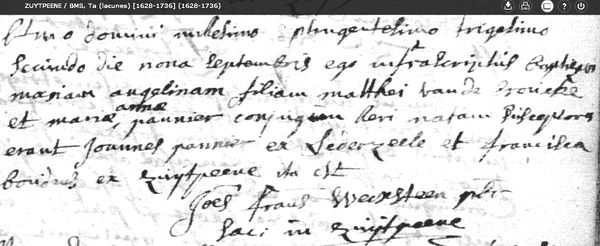 ZUYTPEENE / BMS, Ta (lacunes) [1628-1736] (1628-1736)
Anno domini millesimo septingentesimo trigesimo
secundo die nona septembris ego infrascriptus baptisavi
mariam angelinam filiam matthei vande
et mariæ annæ pannier conjugum heri natam susceptores
erant Joannes pannier ex Lederzeele et francisca
ex zuÿtpeene ita est
Joes frans Wecksteen pbr
saci in zuÿtpeene